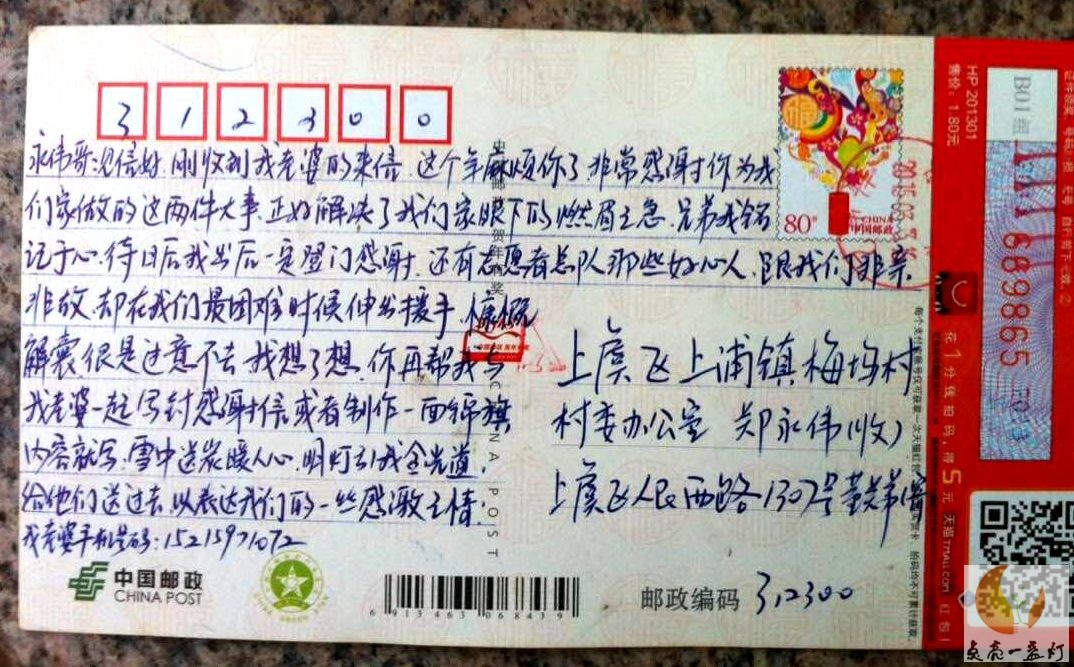 312300
永伟哥:见信好.刚收到我老婆的来信.这个年麻烦你了.非常感谢你为我
们家做的这两件大事.正好解决了我们家眼下的燃眉之急.兄弟我铭
记于心.待日后我出后一定登门感谢.还有志愿者总队那些好心人.跟我们非亲
非故.却在我们最困难时候伸出援手.慷慨
解囊.很是过意不去.我想了想.你再帮我与
我老婆一起写封感谢信或者制作一面锦旗
内容就写.雪中送炭暖人心.明灯引我金光道.
给他们送过去.以表达我们的一些感激之情.
我老婆手机号码:15215971072
上虞区上浦镇梅坞村
村委办公室 郑永伟(收)
上虞区人民西路1307号董关弟
邮政编码 312300
中国邮政
CHINA POST
6 913463 068439
80分
CHINA
中国邮政
HP 201301
售价:1.80元
B01组
669865
花1分钱拍码,得5元天猫TMALL.COM红包!
点亮一盏灯